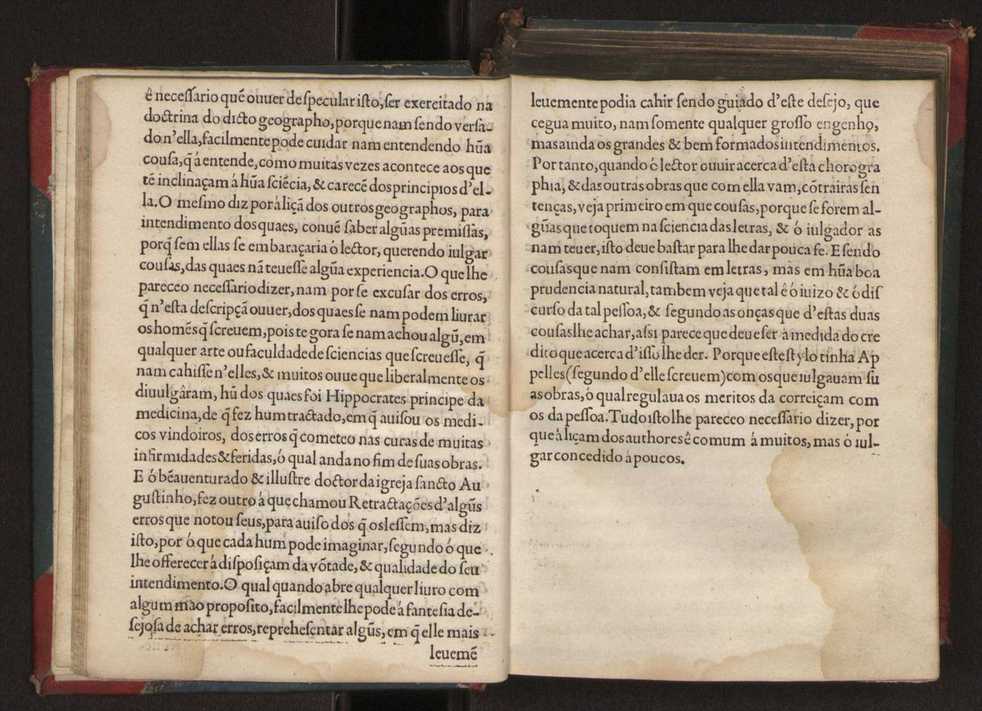 ê neceſſario quẽ ouuer de ſpecular iſto, ſer exercitado na
doctrina do dicto geographo, porque nam ſendo verſa-
do n'ella, facilmente pode cuidar nam entendendo hũa
couſa, q̃ á entende, como muitas vezes acontece aos que
tẽ inclinaçam á hũa ſciẽcia, & carecẽ dos principios d'el-
la. O meſmo diz por á liçã dos outros geographos, para
intendimento dos quaes, conuẽ ſaber algũas premiſſas,
porq̃ ſem ellas ſe embaraçaria ó lector, querendo iulgar
couſas, das quaes nã teueſſe algũa experiencia. O que lhe
pareceo neceſſario dizer, nam por ſe excuſar dos erros,
q̃ n'eſta deſcripçã ouuer, dos quaes ſe nam podem liurar
os homẽs q̃ ſcreuem, pois te gora ſe nam achou algũ, em
qualquer arte ou faculdade de ſciencias que ſcreueſſe, q̃
nam cahiſſe n'elles, & muitos ouue que liberalmente os
diuulgâram, hũ dos quaes foi Hippocrates principe da
medicina, de q̃ fez hum tractado, em q̃ auiſou os medi-
cos vindoiros, dos erros q̃ cometeo nas curas de muitas
infirmidades & feridas, ó qual anda no fim de ſuas obras.
E ó bẽauenturado & illuſtre doctor da igreja ſancto Au
guſtinho, fez outro á que chamou Retractações d'algũs
erros que notou ſeus, para auiſo dos q̃ os leſſem, mas diz
iſto, por ó que cada hum pode imaginar, ſegundo ó que
lhe offerecer á diſpoſiçam da võtade, & qualidade do ſeu
intendimento. O qual quando abre qualquer liuro com
algum mao propoſito, facilmente lhe pode á fanteſia de-
ſejoſa de achar erros, repreheſentar algũs, em q̃ elle mais
leuemẽ
leuemente podia cahir ſendo guiado d'eſte deſejo, que
cegua muito, nam ſomente qualquer groſſo engenho,
mas ainda os grandes & bem formados intendimentos.
Por tanto, quando ó lector ouuir acerca d'eſta chorogra
phia, & das outras obras que com ella vam, cõtrairas ſen
tenças, veja primeiro em que couſas, porque ſe forem al-
gũas que toquem na ſciencia das letras, & ó iulgador as
nam teuer, iſto deue baſtar para lhe dar pouca fe. E ſendo
couſas que nam conſiſtam em letras, mas em hũa boa
prudencia natural, tambem veja que tal ê ó iuizo & ó diſ
curſo da tal peſſoa, & ſegundo as onças que d'eſtas duas
couſas lhe achar, aſsi parece que deue ſer á medida do cre
dito que acerca d'iſſo lhe der. Porque eſte ſtylo tinha Ap
pelles (ſegundo d'elle ſcreuem) com os que iulgauam ſu
as obras, ó qual regulaua os meritos da correiçam com
os da peſſoa. Tudo iſto lhe pareceo neceſſario dizer, por
que á liçam dos authores ê comum á muitos, mas ó iul-
gar concedido á poucos.